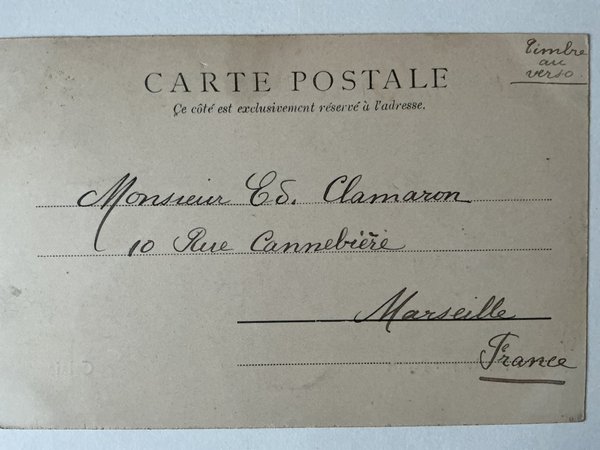 Timbre
au
verso.
CARTE POSTALE
Ce côté est exclusivement réservé à l'adresse.
Monsieur Ed. Clamaron
10 Rue Cannebière
Marseille
France